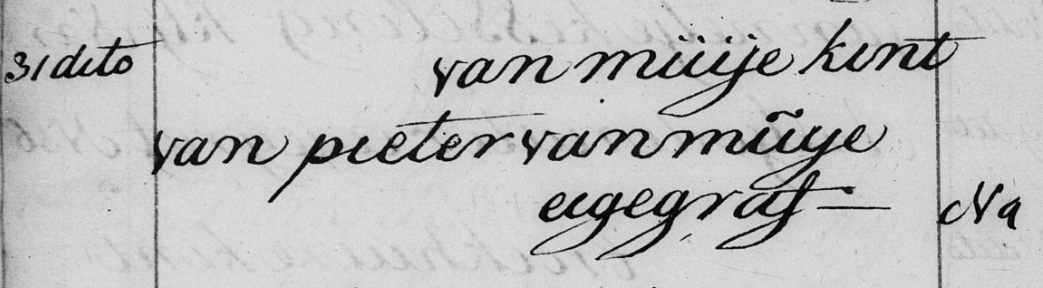 31 dito van müije kint
van pieter van müye
eigegraf — Na